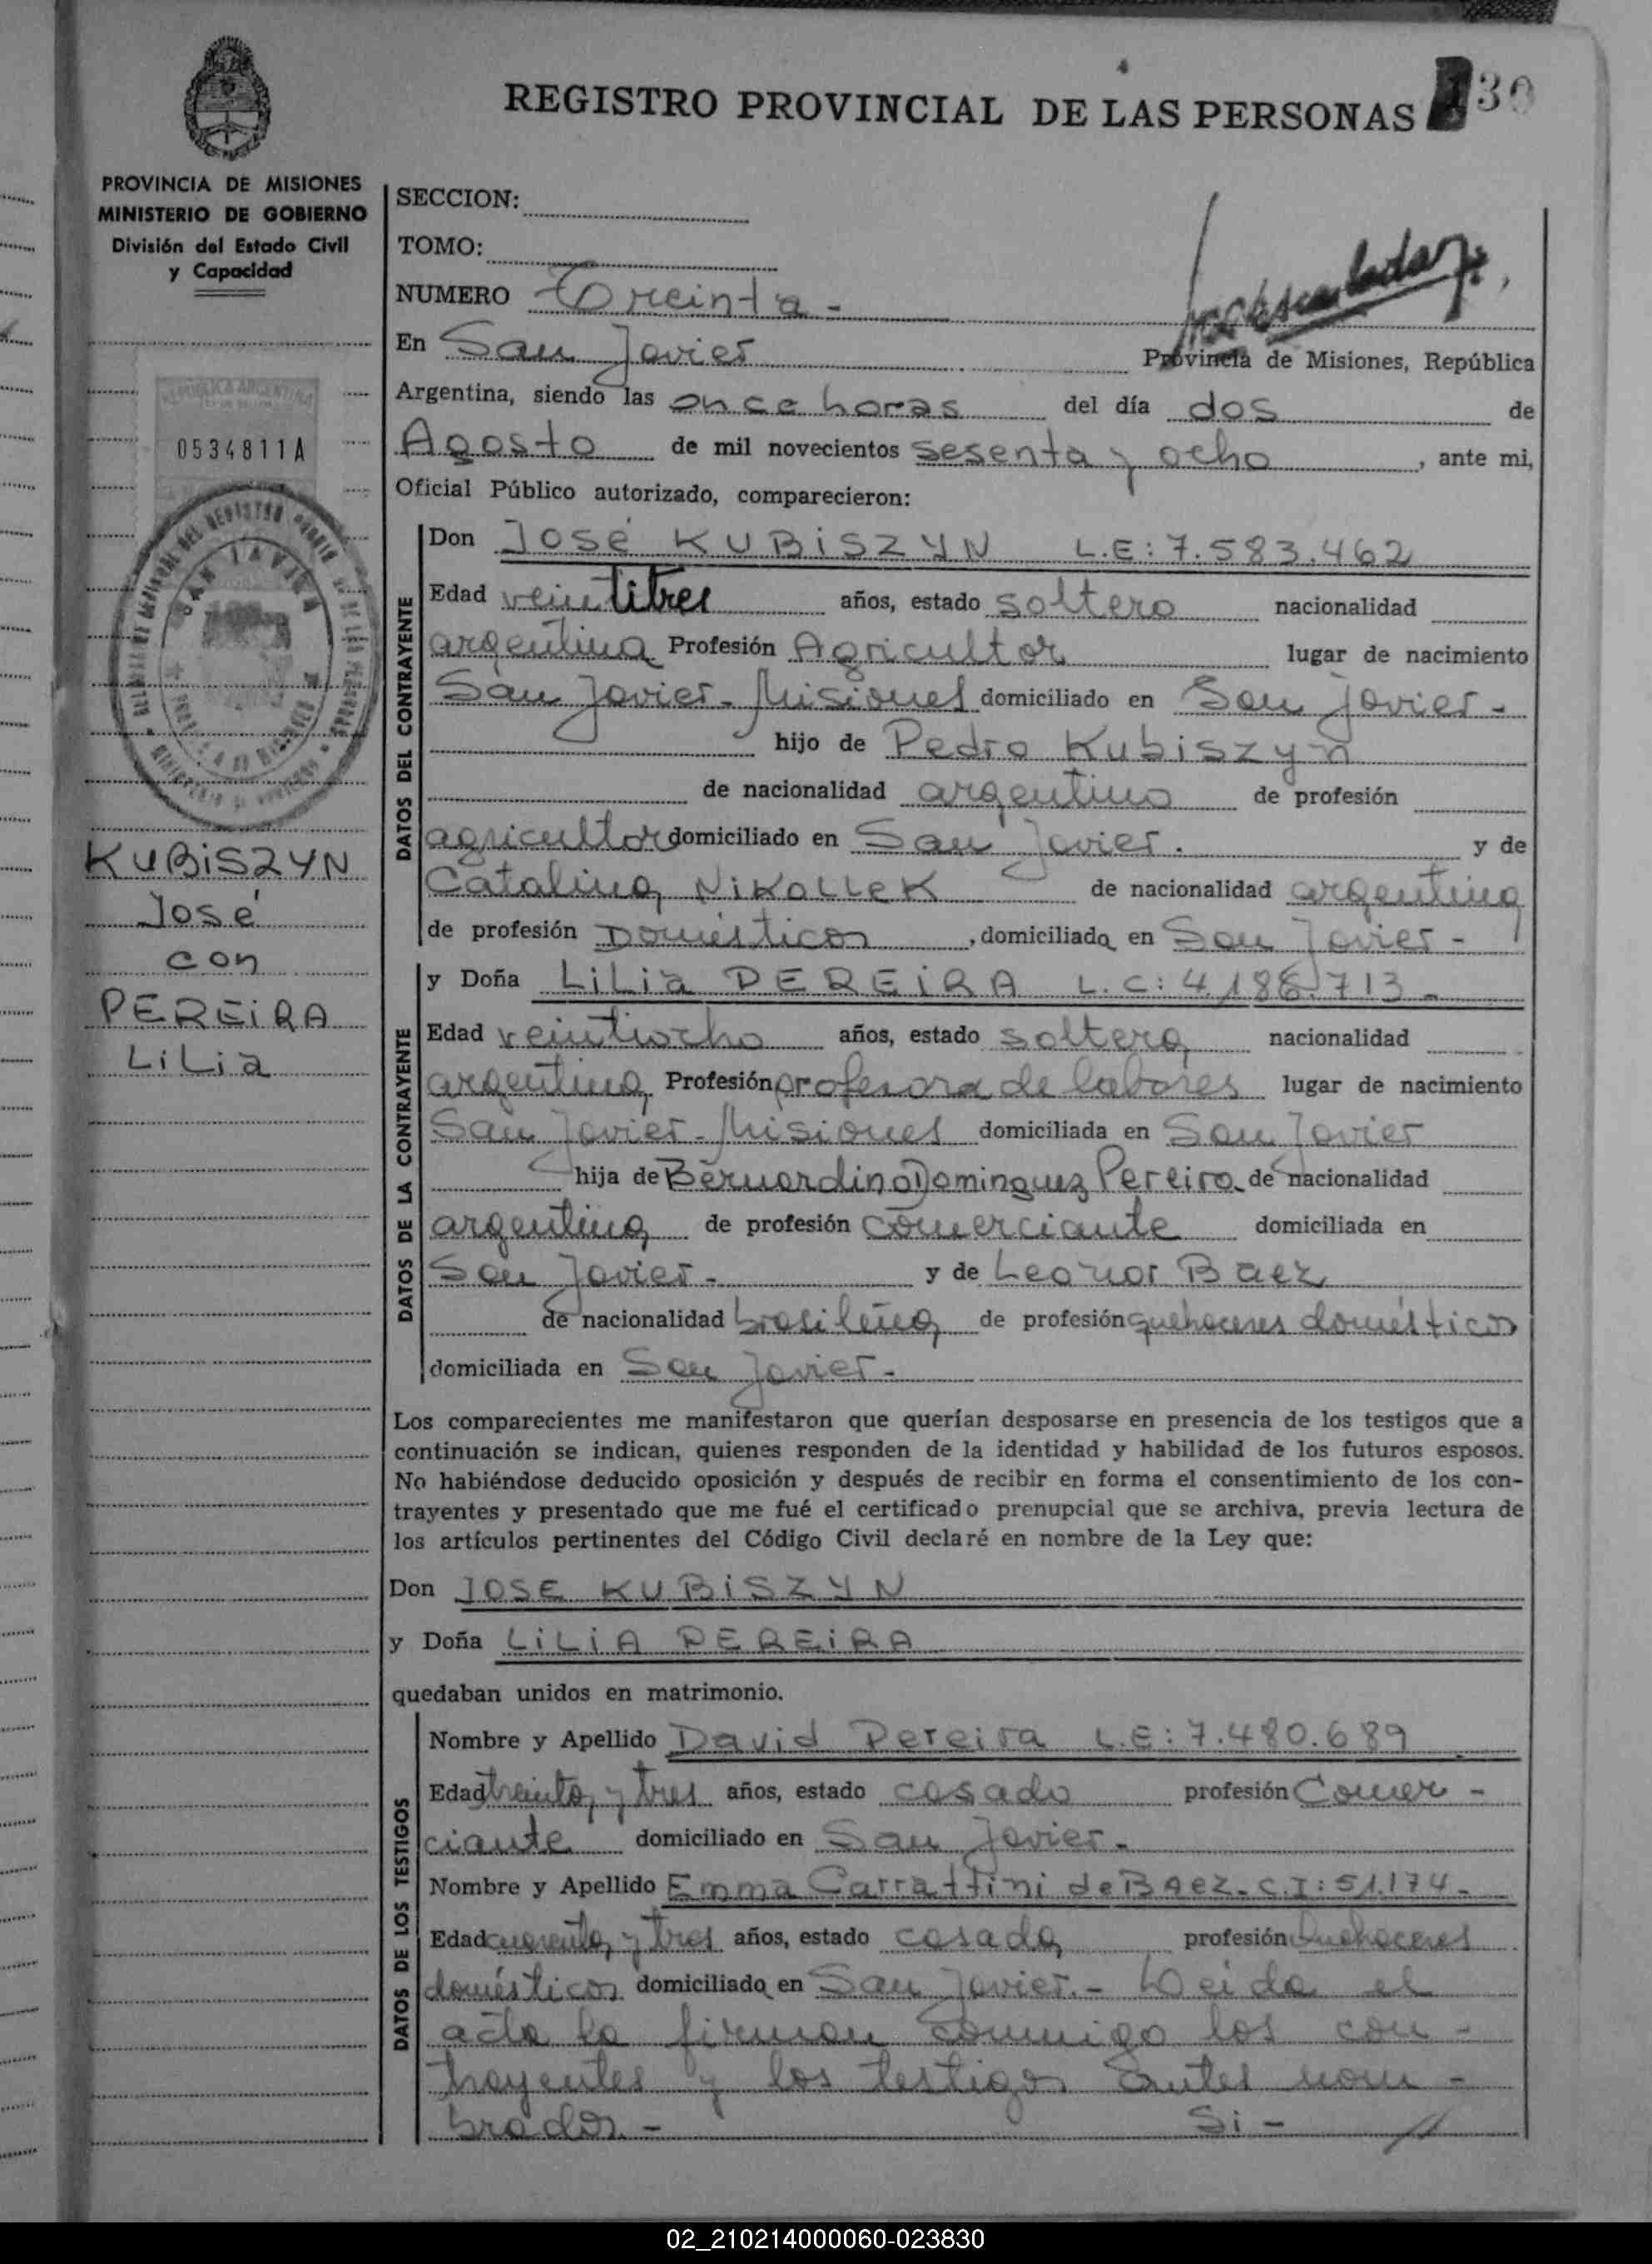 REGISTRO PROVINCIAL DE LAS PERSONAS 30
PROVINCIA DE MISIONES
MINISTERIO DE GOBIERNO
División del Estado Civil
y Capacidad
REPUBLICA ARGENTINA
0534811A
SAN JAVIER
KUBiSZYN
José
con
PEREiRA
LiLia
SECCION:
TOMO:
NUMERO Treinta -
En San Javier Provincia de Misiones, República
Argentina, siendo las once horas del día dos de
Agosto de mil novecientos sesenta y ocho, ante mi,
Oficial Público autorizado, comparecieron:
DATOS DEL CONTRAYENTE
Don José KUBiSZYN L.E: 7.583.462
Edad veintitres años, estado soltero nacionalidad
argentina Profesión Agricultor lugar de nacimiento
San Javier - Misiones domiciliado en San Javier -
hijo de Pedro Kubiszyn
de nacionalidad argentino de profesión
agricultor domiciliado en San Javier. y de
Catalina NiKoLLeK de nacionalidad argentina
de profesión Domésticos, domiciliada en San Javier -
DATOS DE LA CONTRAYENTE
y Doña LiLia PEREiRA L.C: 4.186.713 -
Edad veintiocho años, estado soltera nacionalidad
argentina Profesión profesora de labores lugar de nacimiento
San Javier - Misiones domiciliada en San Javier
hija de Bernardino Dominguez Pereira de nacionalidad
argentina de profesión comerciante domiciliada en
San Javier - y de Leonor Baez
de nacionalidad brasileña de profesión quehaceres domésticos
domiciliada en San Javier -
Los comparecientes me manifestaron que querían desposarse en presencia de los testigos que a
continuación se indican, quienes responden de la identidad y habilidad de los futuros esposos.
No habiéndose deducido oposición y después de recibir en forma el consentimiento de los con-
trayentes y presentado que me fué el certificado prenupcial que se archiva, previa lectura de
los artículos pertinentes del Código Civil declaré en nombre de la Ley que:
Don JOSE KUBiSZYN
y Doña LiLiA PEREiRA
quedaban unidos en matrimonio.
DATOS DE LOS TESTIGOS
Nombre y Apellido David Pereira L.E: 7.480.689
Edad treinta y tres años, estado casado profesión Comer -
ciante domiciliado en San Javier -
Nombre y Apellido Emma Carrattini de BAez. C.I: 51.174 -
Edad cuarenta y tres años, estado casada profesión Quehaceres
domésticos domiciliada en San Javier. - Leida el
acta la firman conmigo los con -
trayentes y los testigos antes nom -
brados. - Si - //
02_210214000060-023830